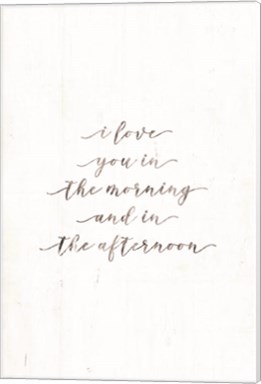 i love
you in
the morning
and in
the afternoon